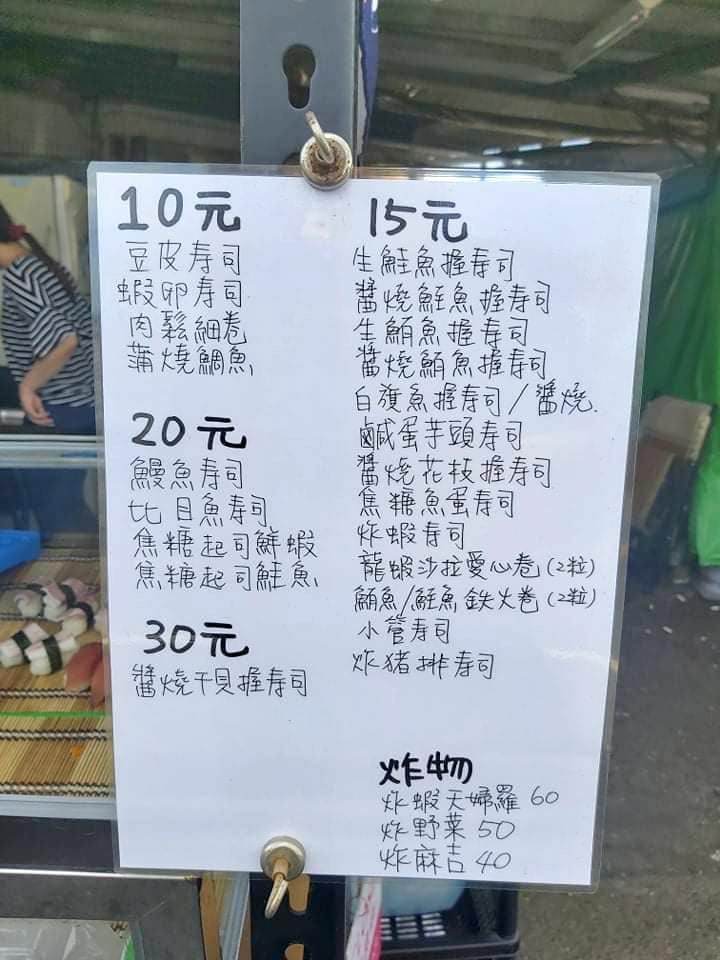 10元
豆皮寿司
蝦卵寿司
肉鬆細卷
蒲燒鯛魚
20元
鰻魚寿司
比目魚寿司
焦糖起司鮮蝦
焦糖起司鮭魚
30元
醬燒干貝握寿司
15元
生鮭魚握寿司
醬燒鮭魚握寿司
生鮪魚握寿司
醬燒鮪魚握寿司
白旗魚握寿司/醬燒.
鹹蛋芋頭寿司
醬燒花枝握寿司
焦糖魚蛋寿司
炸蝦寿司
龍蝦沙拉愛心卷(2粒)
鮪魚/鮭魚鉄火卷(2粒)
小管寿司
炸猪排寿司
炸物
炸蝦天婦羅 60
炸野菜 50
炸麻吉 40